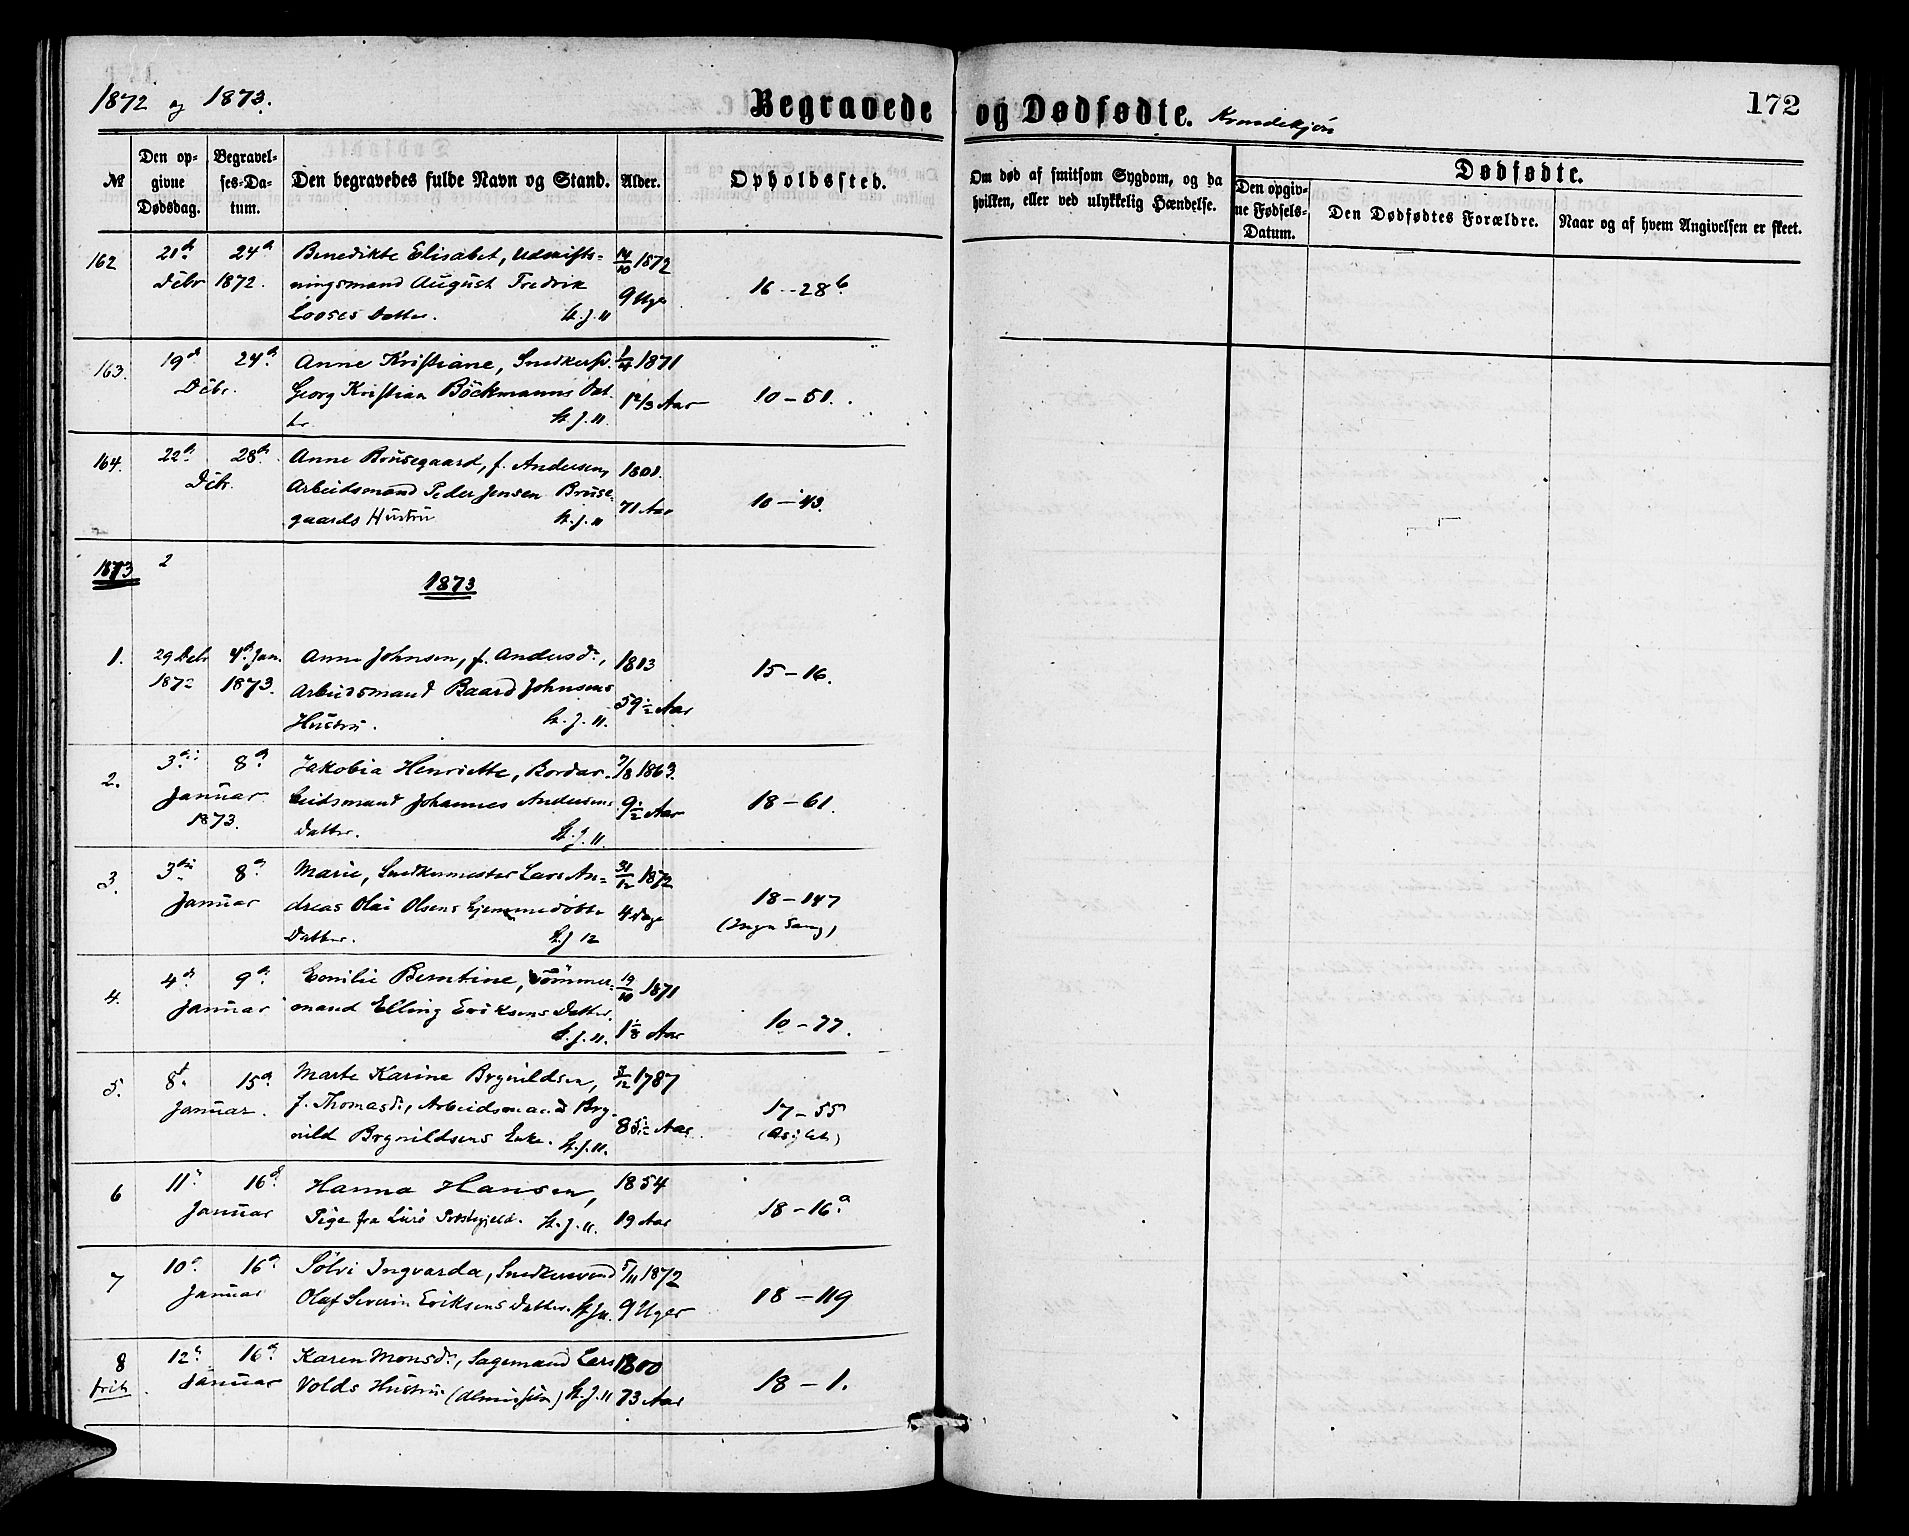 1872 og 1873.
Begravede og Dødfødte. Kvindekjøn
172
№
Den opgivne Dødsdag.
Begravelses-Datum.
Den begravedes fulde Navn og Stand.
Alder.
Opholdssted.
Om død af smitsom Sygdom, og da hvilken, eller ved ulykkelig Hændelse.
Dødfødte.
Den opgivne Fødsels-Datum.
Den Dødfødtes Forældre.
Naar og af hvem Angivelsen er skeet.
162 21de 24de Benedikte Elisabet, 14/10 1872
Debr 1872. ningsmand August Fredrik 9 Uger 16 - 28 b.
Looses Datter. St. J. 11
163. 19de 24de Anne Kristiane, 1/4 1871
Debr. Georg Kristian Böckmanns Dat- 1 2/3 Aar 10 - 51.
ter. St. J. 11.
164. 22de 28de Anne Brusegaard, f. Andersen, 1801.
Debr. Arbeidsmand Peder Jensen Bruse- 71 Aar 10 - 43.
gaards Hustru St. J. 11
1873 2
1873
1. 29 Debr 4de Jan. Anne Johnsen, f. Andersdr., 1813
1872 1873. Arbeidsmand Baard Johnsens 59 1/2 Aar 15 - 16.
Hustru. St. J. 11.
2. 3die 8de Jakobia Henriette, Bordar- 7/8 1863.
Januar beidsmand Johannes Andersens 9 1/2 Aar 18 - 61.
1873. Datter. St. J. 11.
3. 3die 8de Marie, Snedkermester Lars An- 31/12 1872
Januar dreas Olai Olsens hjemmedöbte 4 Dage 18 - 147
Datter. St. J 12 (Ingen Sang)
4. 4de 9de Emilie Berntine, Tömmer- 19/10 1871
Januar mand Elling Eriksens Datter. 1 1/8 Aar 10 - 77.
St. J. 11.
5. 8de 15de Marte Karine Brynildsen, /12 1787
Januar. f. Thomasdr., Arbeidsmand Bry- 85 Aar 17 - 55
nild Brynildsens Enke. St. J. 11. (Asylet)
6 11te 16de Hanna Hansen, 1854
Januar Pige fra Lurö Præstegjeld. St. J. 11. 19 Aar 18 - 16 a.
7 10de 16de Sölvi Ingvarda, Snedkersvend 5/11 1872
Januar Olaf Severin Eriksens Datter. St. J 11. 9 Uger 18 - 119
8 12te 16de Karen Monsdr., Sagmand Lars 1800
frit. Januar Volds Hustru (Almissen) St. J. 11 73 Aar 18 - 1.